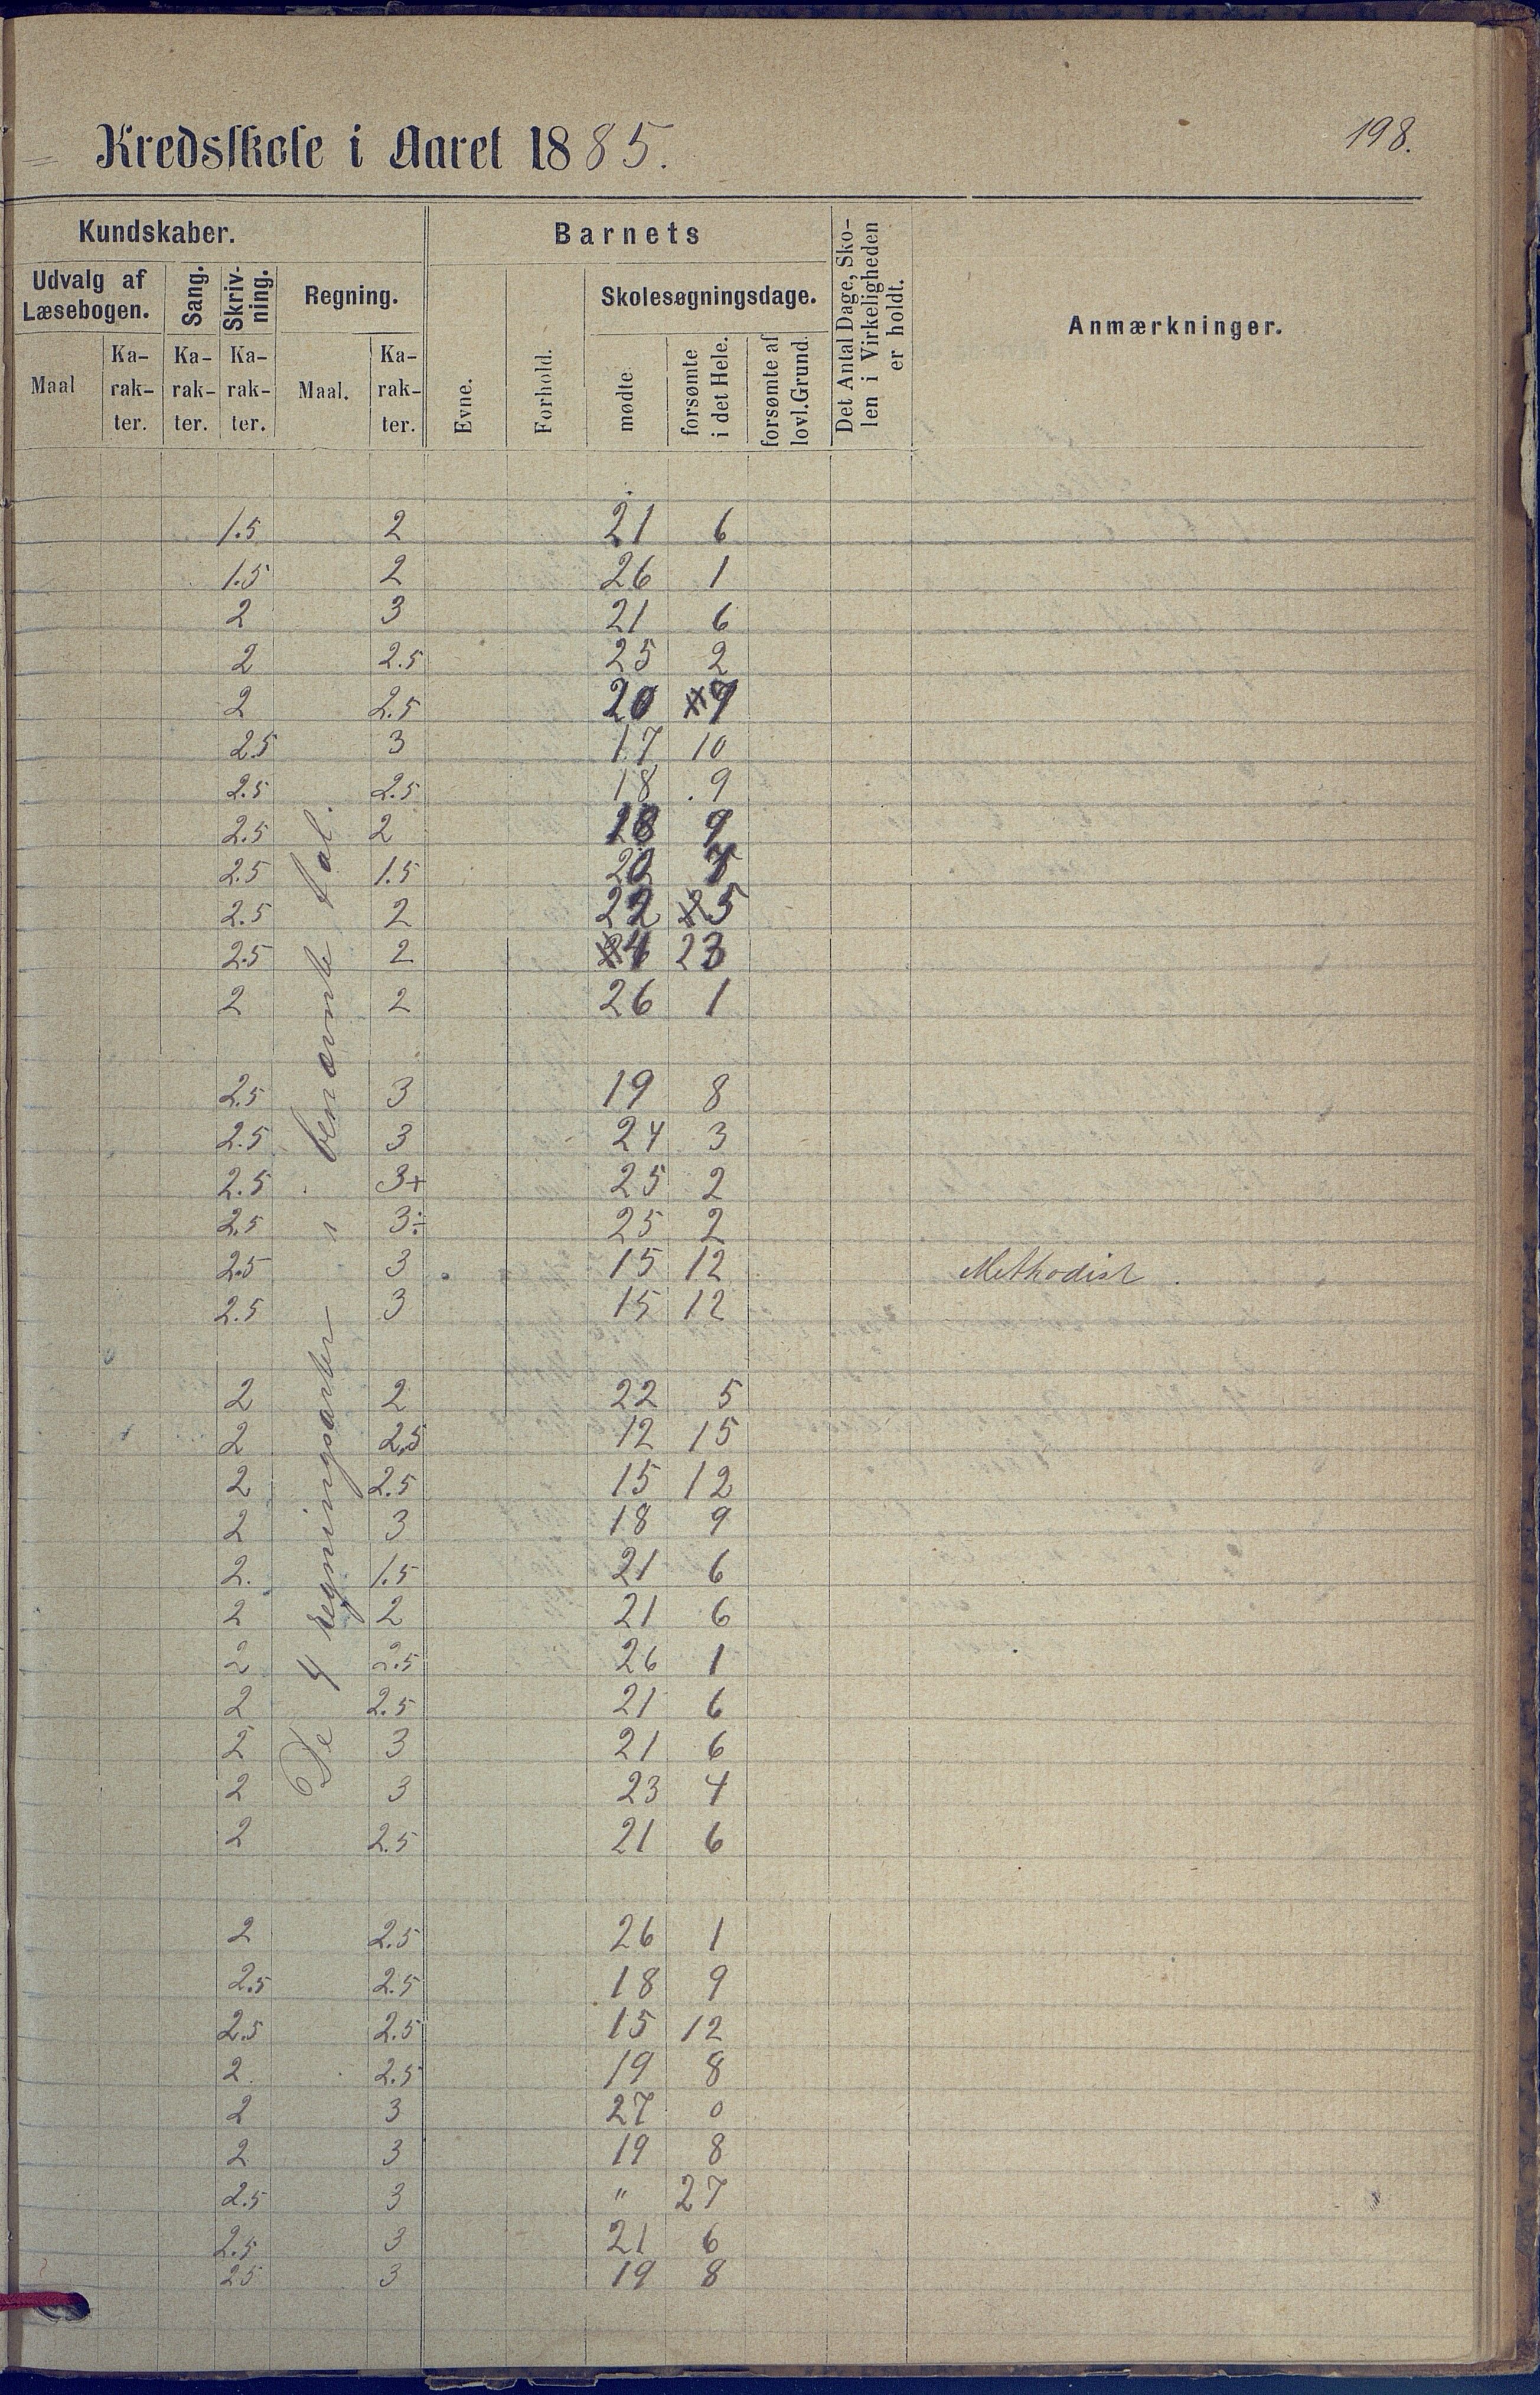 198.
Kredsskole i Aaret 1885.
Kundskaber.
Barnets
Det Antal Dage, Sko-
len i Virkeligheden
er holdt.
Anmærkninger.
Udvalg af
Læsebogen.
Sang.
Skriv-
ning.
Regning.
Skolesøgningsdage.
Maal
Ka-
rak-
ter.
Ka-
rak-
ter.
Ka-
rak-
ter.
Maal.
Ka-
rak-
ter.
Evne.
Forhold.
mødte
forsømte
i det Hele.
forsømte af
lovl. Grund.
De 4 regningsarter i benævnte tal.
1.5 2 21 6
1.5 2 26 1
2 3 21 6
2 2.5 25 2
2 2.5 20 7
2.5 3 17 10
2.5 2.5 18 9
2.5 2 18 9
2.5 1.5 20 7
2.5 2 22 5
2.5 2 4 23
2 2 26 1
2.5 3 19 8
2.5 3 24 3
2.5 3+ 25 2
2.5 3÷ 25 2
2.5 3 15 12 Methodist.
2.5 3 15 12
2 2 22 5
2 2.5 12 15
2 2.5 15 12
2 3 18 9
2. 1.5 21 6
2 2 21 6
2 2.5 26 1
2 2.5 21 6
2 3 21 6
2 3 23 4
2 2.5 21 6
2 2.5 26 1
2.5 2.5 18 9
2.5 2.5 15 12
2. 2.5 19 8
2 3 27 0
2 3 19 8
2.5 3 " 27
2.5 3 21 6
25 3 19 8